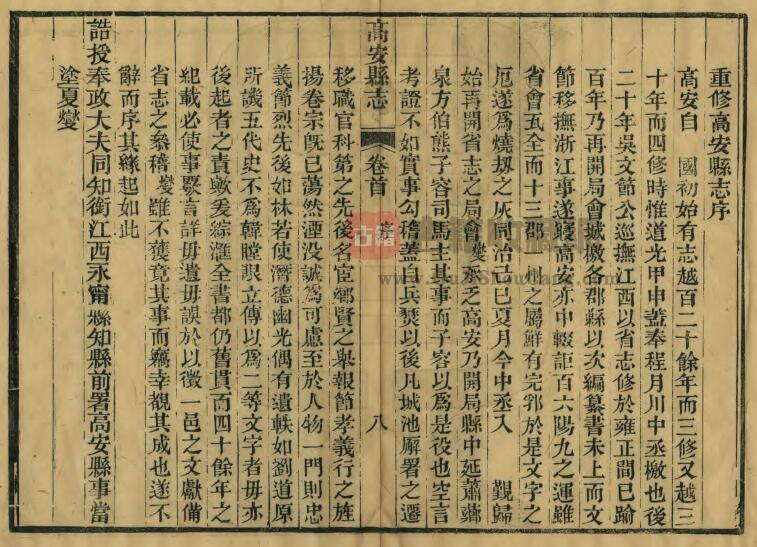 重修高安縣志序
高安自　國初始有志越百二十餘年而三修又越三
十年而四修時惟道光甲申蓋奉程月川中丞檄也後
二十年吳文節公巡撫江西以省志修於雍正間已踰
百年乃再開局會城檄各郡縣以次編纂書未上而文
節移撫浙江事遂寢高安亦中輟詎百六陽九之運雖
省會瓦全而十三郡一州之屬鮮有完邪於是文字之
厄遂為燒刼之灰同治己巳夏月今中丞入　　覲歸
始再開省志之局會燮承乏高安乃開局縣中延蕭
泉方伯熊子容司馬主其事而子容以為是役也空言
考證不如實事勾稽蓋自兵燹以後凡城池廨署之遷
高安縣志
卷首
序
八
移職官科第之先後名宦鄉賢之舉報節孝義行之旌
揚卷宗既已蕩然湮没誠為可慮至於人物一門則忠
義節烈先後如林若使潛德幽光偶有遺軼如劉道原
所譏五代史不為韓瞠眼立傳以為二等文字者毋亦
後起者之責歟爰綜滙全書都仍舊貫而四十餘年之
紀載必使事覈言詳毋遺毋誤於以徵一邑之文獻備
省志之叅稽燮雖不獲竟其事而竊幸觀其成也遂不
辭而序其緣起如此
誥授奉政大夫同知銜江西永甯縣知縣前署高安縣事當
塗夏燮
古籍